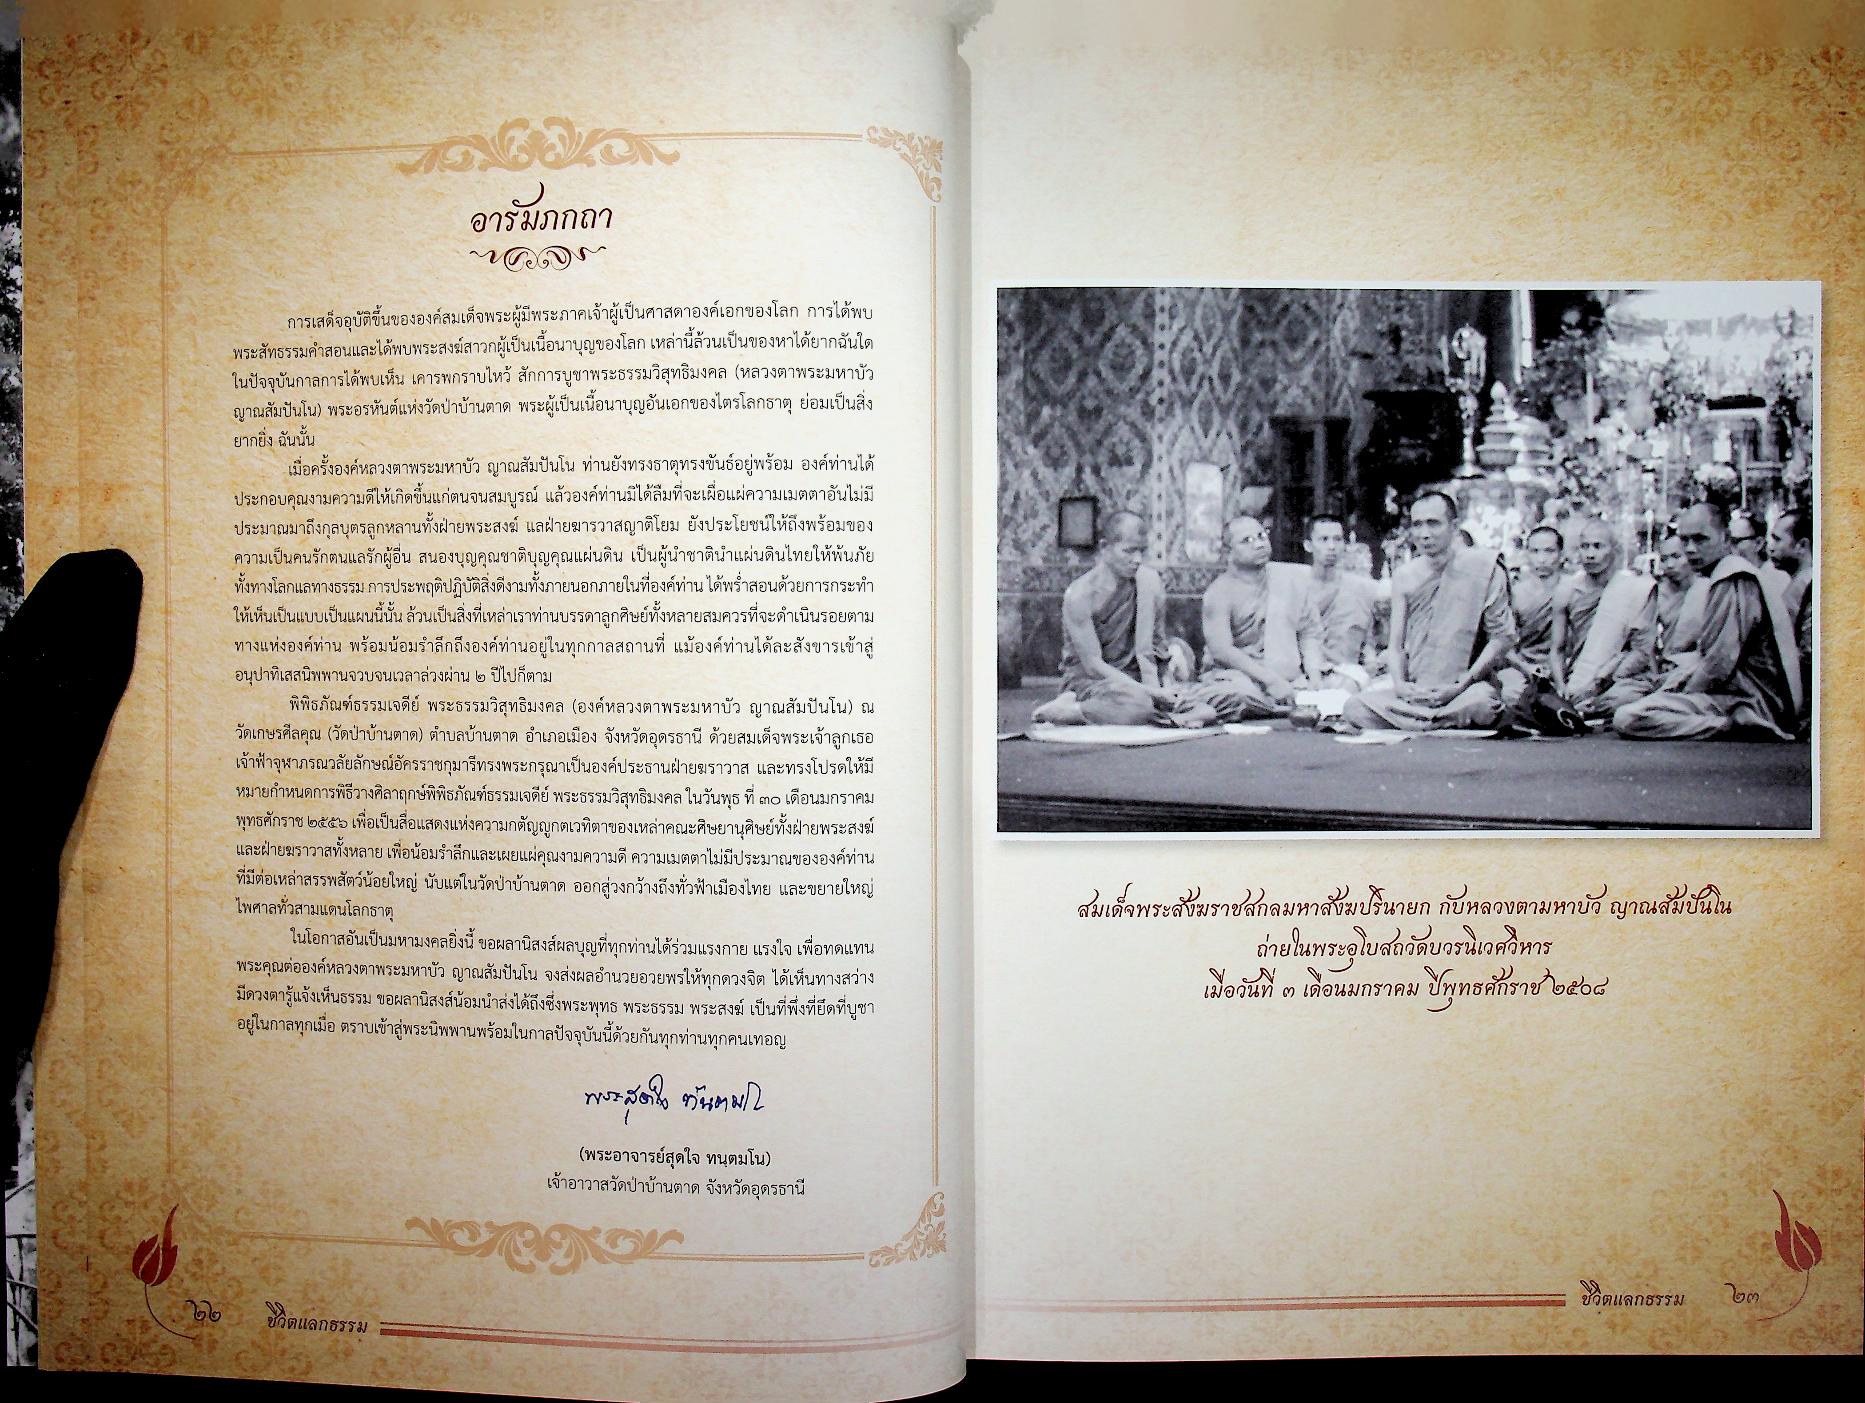 อารัมภกถา
การเสด็จอุบัติขึ้นขององค์สมเด็จพระผู้มีพระภาคเจ้าผู้เป็นศาสดาองค์เอกของโลก การได้พบ
พระสัทธรรมคำสอนและได้พบพระสงฆ์สาวกผู้เป็นเนื้อนาบุญของโลก เหล่านี้ล้วนเป็นของหาได้ยากฉันใด
ในปัจจุบันกาลการได้พบเห็น เคารพกราบไหว้ สักการบูชาพระธรรมวิสุทธิมงคล (หลวงตาพระมหาบัว
ญาณสัมปันโน) พระอรหันต์แห่งวัดป่าบ้านตาด พระผู้เป็นเนื้อนาบุญอันเอกของไตรโลกธาตุ ย่อมเป็นสิ่ง
ยากยิ่ง ฉันนั้น
เมื่อครั้งองค์หลวงตาพระมหาบัว ญาณสัมปันโน ท่านยังทรงธาตุทรงขันธ์อยู่พร้อม องค์ท่านได้
ประกอบคุณงามความดีให้เกิดขึ้นแก่ตนจนสมบูรณ์ แล้วองค์ท่านมิได้ลืมที่จะเผื่อแผ่ความเมตตาอันไม่มี
ประมาณมาถึงกุลบุตรลูกหลานทั้งฝ่ายพระสงฆ์ แลฝ่ายฆารวาสญาติโยม ยังประโยชน์ให้ถึงพร้อมของ
ความเป็นคนรักตนแลรักผู้อื่น สนองบุญคุณชาติบุญคุณแผ่นดิน เป็นผู้นำชาตินำแผ่นดินไทยให้พ้นภัย
ทั้งทางโลกแลทางธรรม การประพฤติปฏิบัติสิ่งดีงามทั้งภายนอกภายในที่องค์ท่าน ได้พร่ำสอนด้วยการกระทำ
ให้เห็นเป็นแบบเป็นแผนนี้นั้น ล้วนเป็นสิ่งที่เหล่าเราท่านบรรดาลูกศิษย์ทั้งหลายสมควรที่จะดำเนินรอยตาม
ทางแห่งองค์ท่าน พร้อมน้อมรำลึกถึงองค์ท่านอยู่ในทุกกาลสถานที่ แม้องค์ท่านได้ละสังขารเข้าสู่
อนุปาทิเสสนิพพานจวบจนเวลาล่วงผ่าน ๒ ปีไปก็ตาม
พิพิธภัณฑ์ธรรมเจดีย์ พระธรรมวิสุทธิมงคล (องค์หลวงตาพระมหาบัว ญาณสัมปันโน) ณ
วัดเกษรศีลคุณ (วัดป่าบ้านตาด) ตำบลบ้านตาด อำเภอเมือง จังหวัดอุดรธานี ด้วยสมเด็จพระเจ้าลูกเธอ
เจ้าฟ้าจุฬาภรณวลัยลักษณ์อัครราชกุมารีทรงพระกรุณาเป็นองค์ประธานฝ่ายฆราวาส และทรงโปรดให้มี
หมายกำหนดการพิธีวางศิลาฤกษ์พิพิธภัณฑ์ธรรมเจดีย์ พระธรรมวิสุทธิมงคล ในวันพุธ ที่ ๓๐ เดือนมกราคม
พุทธศักราช ๒๕๕๖ เพื่อเป็นสื่อแสดงแห่งความกตัญญูกตเวทิตาของเหล่าคณะศิษยานุศิษย์ทั้งฝ่ายพระสงฆ์
และฝ่ายฆราวาสทั้งหลาย เพื่อน้อมรำลึกและเผยแผ่คุณงามความดี ความเมตตาไม่มีประมาณขององค์ท่าน
ที่มีต่อเหล่าสรรพสัตว์น้อยใหญ่ นับแต่ในวัดป่าบ้านตาด ออกสู่วงกว้างถึงทั่วฟ้าเมืองไทย และขยายใหญ่
ไพศาลทั่วสามแดนโลกธาตุ
ในโอกาสอันเป็นมหามงคลยิ่งนี้ ขอผลานิสงส์ผลบุญที่ทุกท่านได้ร่วมแรงกาย แรงใจ เพื่อทดแทน
พระคุณต่อองค์หลวงตาพระมหาบัว ญาณสัมปันโน จงส่งผลอำนวยอวยพรให้ทุกดวงจิต ได้เห็นทางสว่าง
มีดวงตารู้แจ้งเห็นธรรม ขอผลานิสงส์น้อมนำส่งได้ถึงซึ่งพระพุทธ พระธรรม พระสงฆ์ เป็นที่พึ่งที่ยึดที่บูชา
อยู่ในกาลทุกเมื่อ ตราบเข้าสู่พระนิพพานพร้อมในกาลปัจจุบันนี้ด้วยกันทุกท่านทุกคนเทอญ
พระสุดใจ ทันตมโน
(พระอาจารย์สุดใจ ทนฺตมโน)
เจ้าอาวาสวัดป่าบ้านตาด จังหวัดอุดรธานี
๒๒ ชีวิตแลกธรรม
สมเด็จพระสังฆราชสกลมหาสังฆปรินายก กับหลวงตามหาบัว ญาณสัมปันโน
ถ่ายในพระอุโบสถวัดบวรนิเวศวิหาร
เมื่อวันที่ ๓ เดือนมกราคม ปีพุทธศักราช ๒๕๐๘
ชีวิตแลกธรรม ๒๓